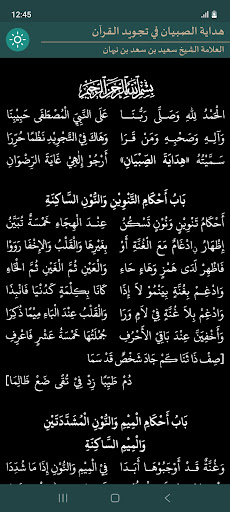 12:45
هداية الصبيان في تجويد القرآن
العلامة الشيخ سعيد بن سعد بن نبهان
بِسْمِ اللَّهِ الرَّحْمَنِ الرَّحِيمِ
الْحَمْدُ لِلَّهِ وَصَلَّى رَبُّنَا عَلَى النَّبِيِّ الْمُصْطَفَى حَبِيبِنَا
وَآلِهِ وَصَحْبِهِ وَمَنْ قَرَا وَهَاكَ فِي التَّجْوِيدِ نَظْمًا حُرِّرَا
سَمَّيْتُهُ «هِدَايَةَ الصِّبْيَانِ» أَرْجُو إِلٰهِي غَايَةَ الرِّضْوَانِ
بَابُ أَحْكَامِ التَّنْوِينِ وَالنُّونِ السَّاكِنَةِ
أَحْكَامُ تَنْوِينٍ وَنُونٍ تَسْكُنُ عِنْدَ الْهِجَاءِ خَمْسَةٌ تُبَيَّنُ
إِظْهَارُ ادْغَامٌ مَعَ الْغُنَّةِ أَوْ بِغَيْرِهَا وَالْقَلْبُ وَالْإِخْفَا رَوَوْا
فَاظْهِرْ لَدَى هَمْزٍ وَهَاءٍ حَاءِ وَالْعَيْنِ ثُمَّ الْغَيْنِ ثُمَّ الْخَاءِ
وَادْغِمْ بِغُنَّةٍ بِيَنْمُو لَا إِذَا كَانَا بِكِلْمَةٍ كَدُنْيَا فَانْبِذَا
وَادْغِمْ بِلَا غُنَّةٍ فِي لَامٍ وَرَا وَالْقَلْبُ عِنْدَ الْبَاءِ مِيمًا ذُكِرَا
وَأَخْفِيَنَّ عِنْدَ بَاقِي الْأَحْرُفِ جُمْلَتُهَا خَمْسَةُ عَشْرٍ فَاعْرِفِ
[صِفْ ذَا ثَنَا كَمْ جَادَ شَخْصٌ قَدْ سَمَا
دُمْ طَيِّبًا زِدْ فِي تُقًى ضَعْ ظَالِمَا]
بَابُ أَحْكَامِ الْمِيمِ وَالنُّونِ الْمُشَدَّدَتَيْنِ
وَالْمِيمِ السَّاكِنَةِ
وَغُنَّةٌ قَدْ أَوْجَبُوهَا أَبَدَا فِي الْمِيمِ وَالنُّونِ إِذَا مَا شُدِّدَا